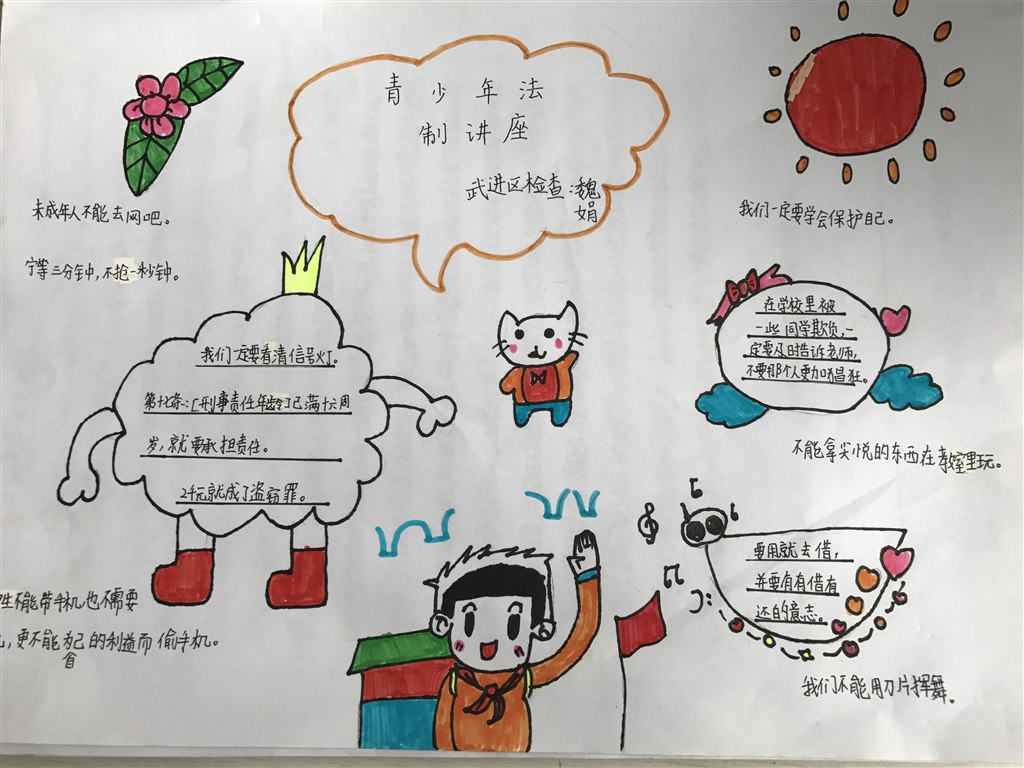 青少年法
制讲座
武进区检查:魏
娟
未成年人不能去网吧。
宁等三分钟,不抢一秒钟。
我们一定要学会保护自己。
我们一定要看清信号灯。
第十七条:[刑事责任年龄]已满十六周
岁,就要承担责任。
2千元就成了盗窃罪。
在学校里被
一些同学欺负,一
定要及时告诉老师,
不要那个人更加嚣张。
不能拿尖锐的东西在教室里玩。
要用就去借,
并要有有借有
还的意志。
我们不能用刀片挥舞。
生不能带手机也不需要
,更不能为自己的利益而偷手机。